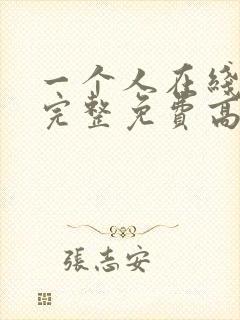 一个人在线
完整免费高
張志安